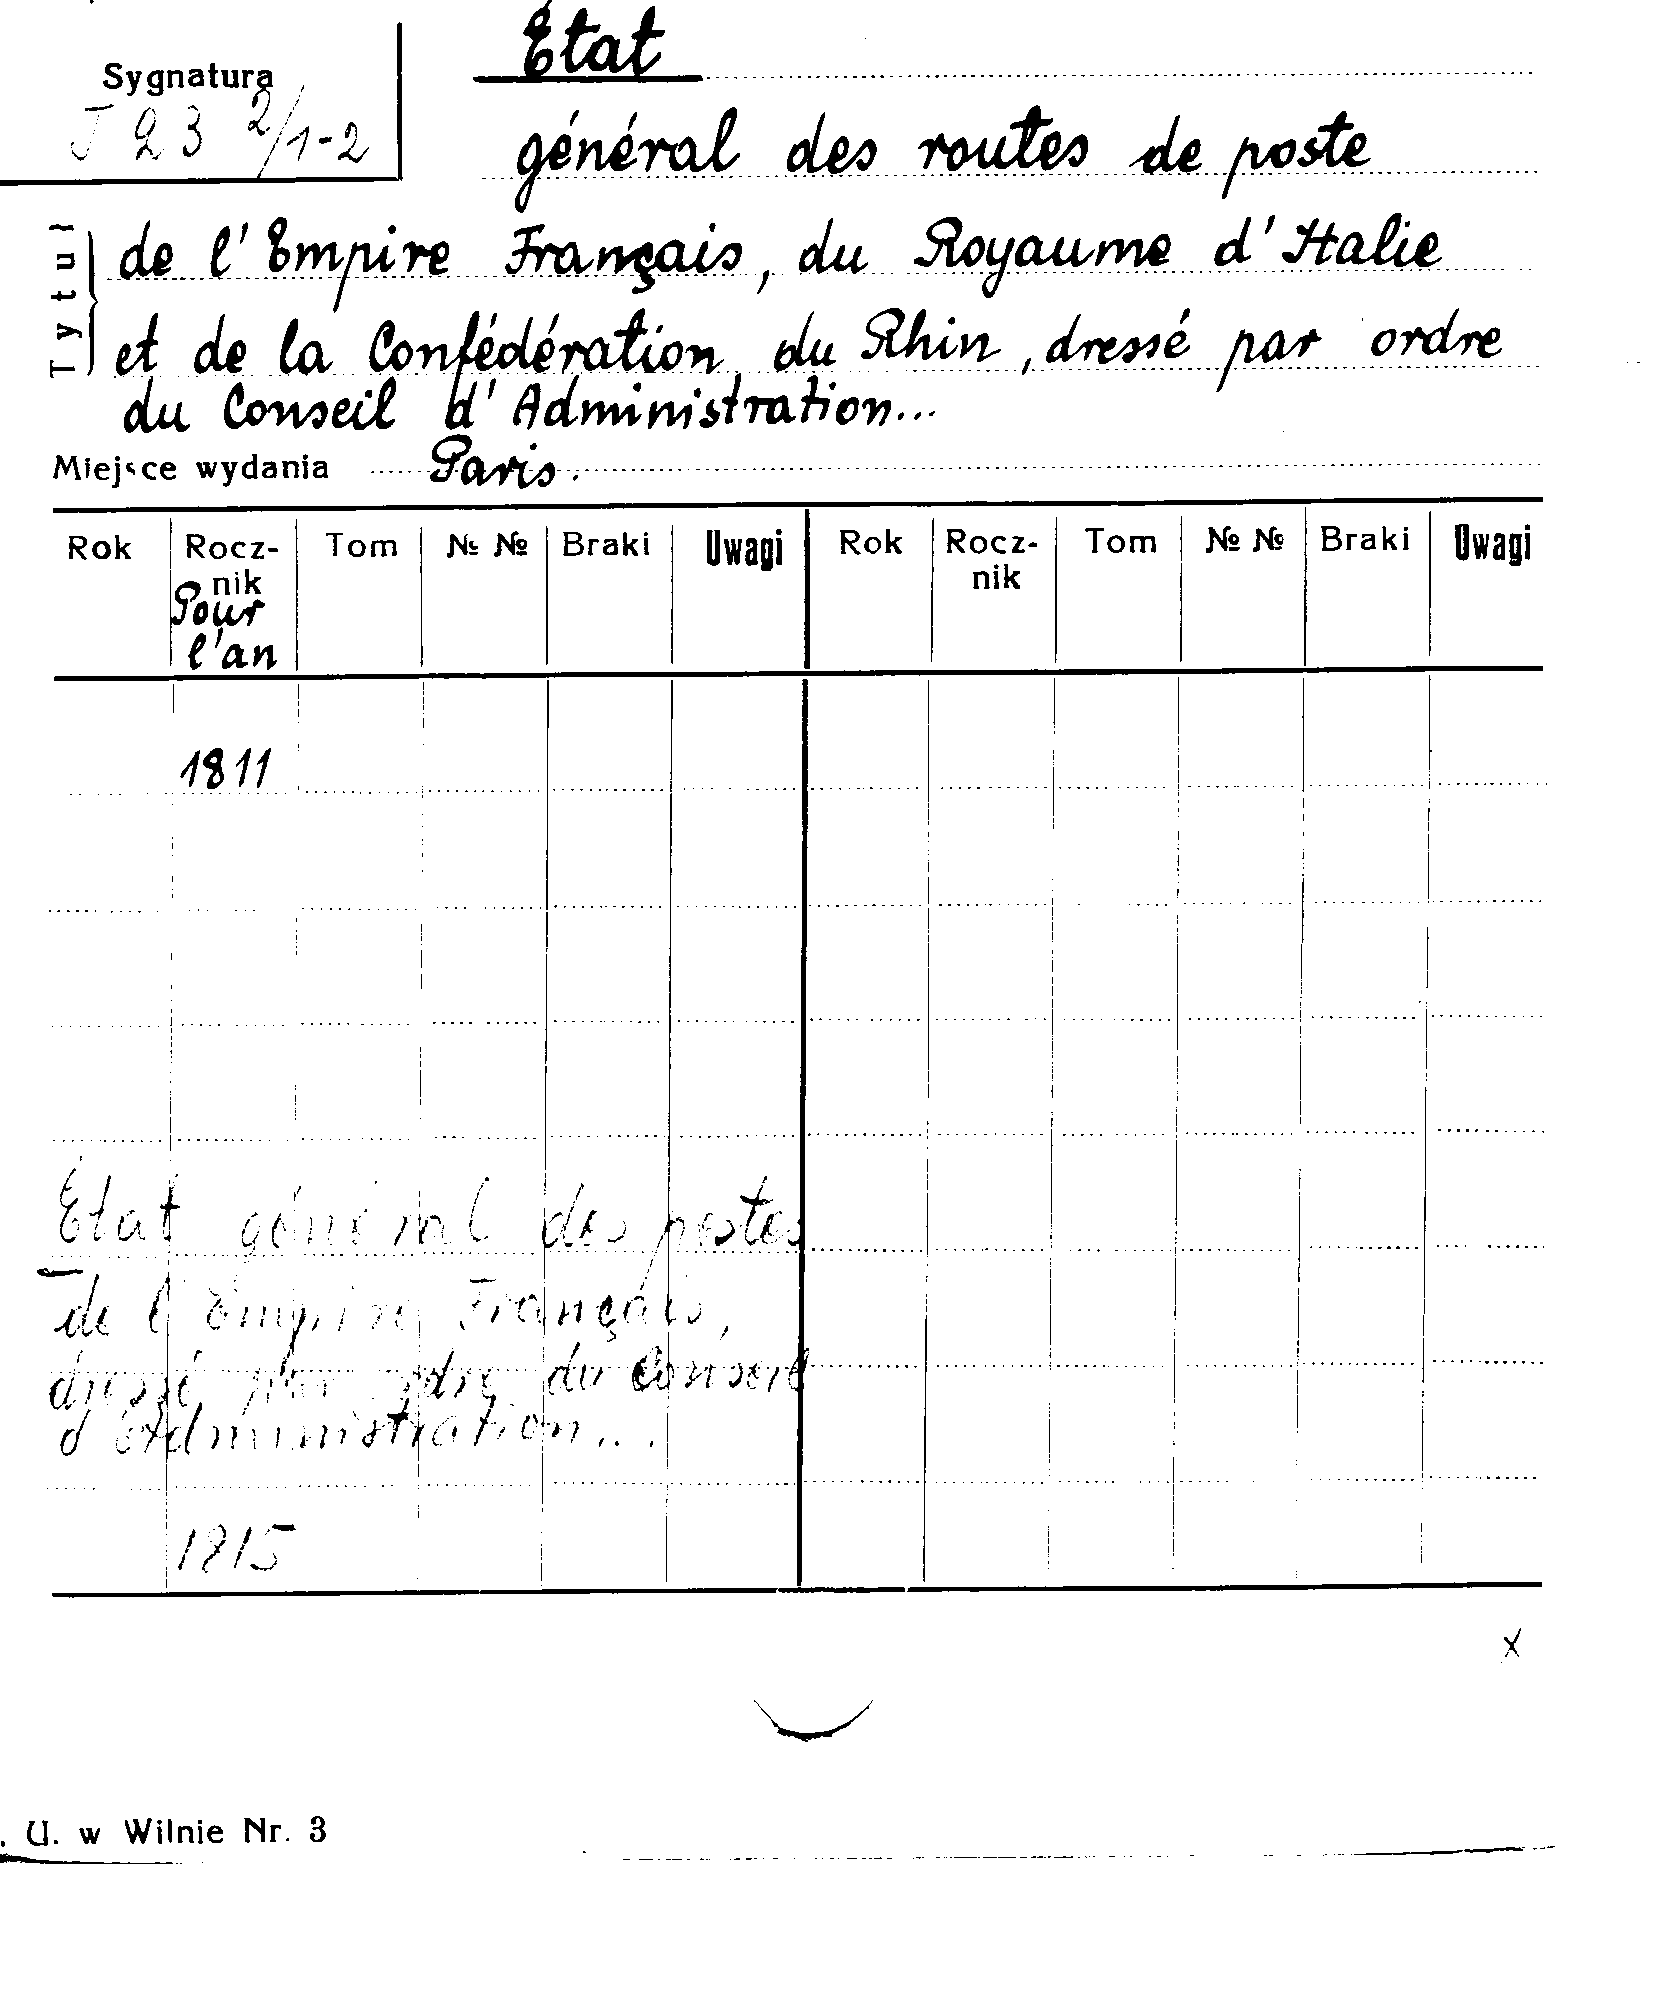 Sygnatura
J 23 2/1-2
Etat
général des routes de poste
Tytul
de l'Empire Français, du Royaume d'Italie
et de la Confédération du Rhin, dressé par ordre
du Conseil d'Administration...
Miejsce wydania Paris.
Rok Rocz-nik Tom № № Braki Uwagi Rok Rocz-nik Tom № № Braki Uwagi
Pour
l'an
1811
Etat général des postes
de l'Empire Français,
dressé par ordre du Conseil
d'Administration...
1815
x
. U. w Wilnie Nr. 3